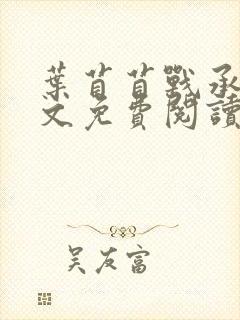 葉苜苜戰承
文免費閱讀
吴友富